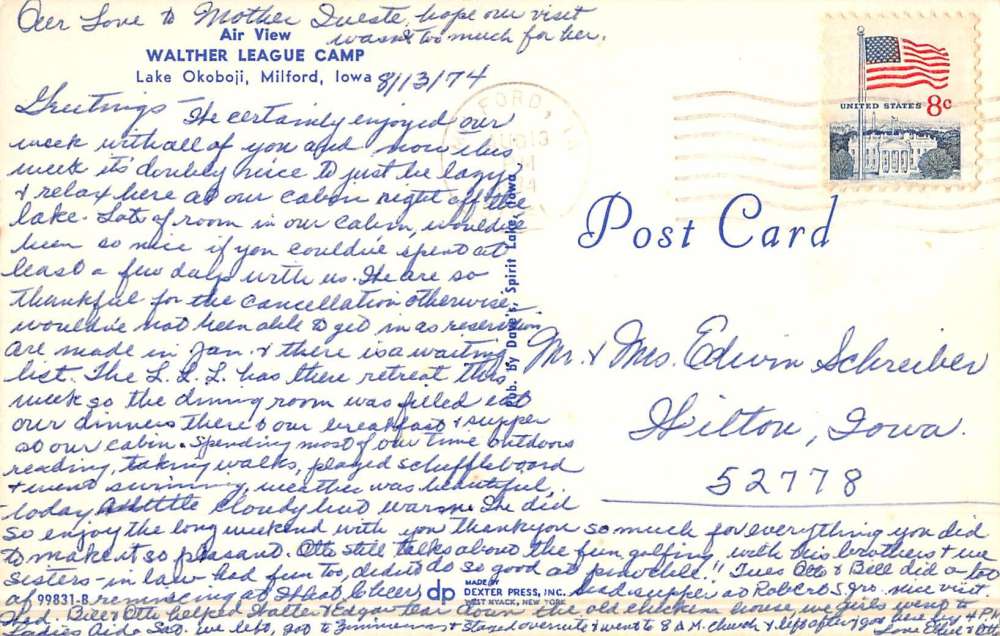 Our Love to Mother Iveste, hope our visit
wasn't too much for her.
Air View
WALTHER LEAGUE CAMP
Lake Okoboji, Milford, Iowa
8/13/74
Greetings - We certainly enjoyed our
week with all of you and now this
week it's doubley nice to just be lazy
& relax here at our cabin right off the
lake. Lots of room in our cabin, would've
been so nice if you could've spent at
least a few days with us. We are so
thankful for the cancellation otherwise
would've not been able to get in as reservation
are made in Jan. & there is a waiting
list. The L.L.L. has there retreat this
week so the dining room was filled eat
our dinners there & our breakfast & supper
at our cabin. Spending most of our time outdoors
reading, taking walks, played schuffleboard
& went swimming, weather was beautiful,
today a little cloudy but warm. We did
so enjoy the long weekend with you thank you so much for everything you did
to make it so pleasant. Otto still talks about the fun golfing with his brothers & we
sisters-in-law had fun too, didn't do so good at pinochle!! Tues Otto & Bill did a lot
of reminiscing at Wheat Cheers and supper at Robert S. Jrs. nice visit
Wed. Bill & Otto helped Walter & Edgar tear down the old chicken house, we girls went to
Ladies Aid & Sat. we left, got to & stayed overnite & went to 8 A.M. Church & left after & got here by 4 P.M.
Love
UNITED STATES 8c
Post Card
Pub. By Dave's, Spirit Lake, Iowa
Mr. & Mrs. Edwin Schreiber
Wilton, Iowa.
52778
99831-B
dp
MADE BY
DEXTER PRESS, INC.
WEST NYACK, NEW YORK